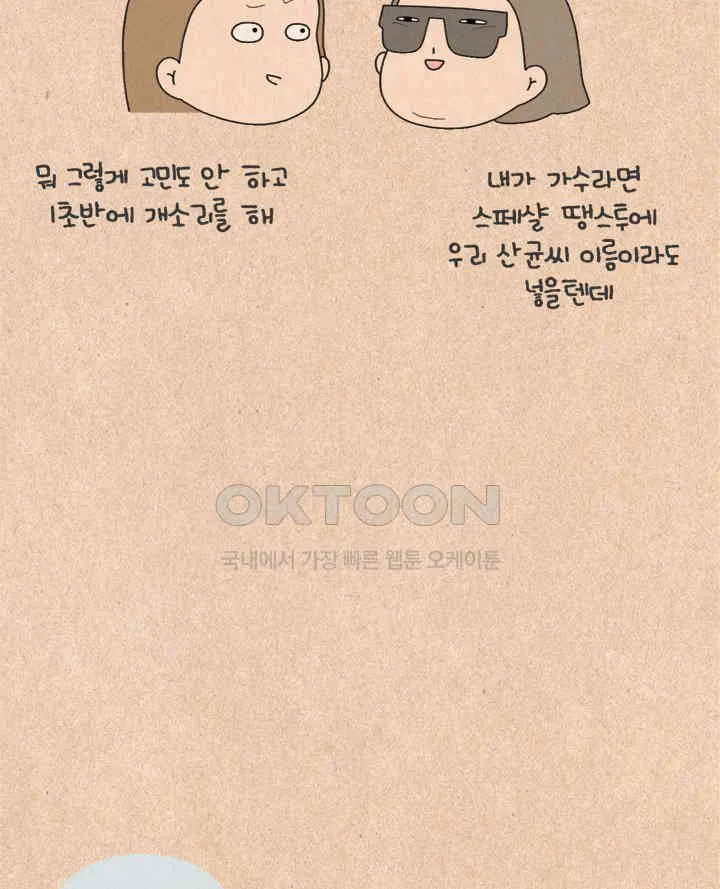 뭐 그렇게 고민도 안 하고
1초반에 개소리를 해
내가 가수라면
스페샬 땡스투에
우리 산균씨 이름이라도
넣을텐데
OKTOON
국내에서 가장 빠른 웹툰 오케이툰